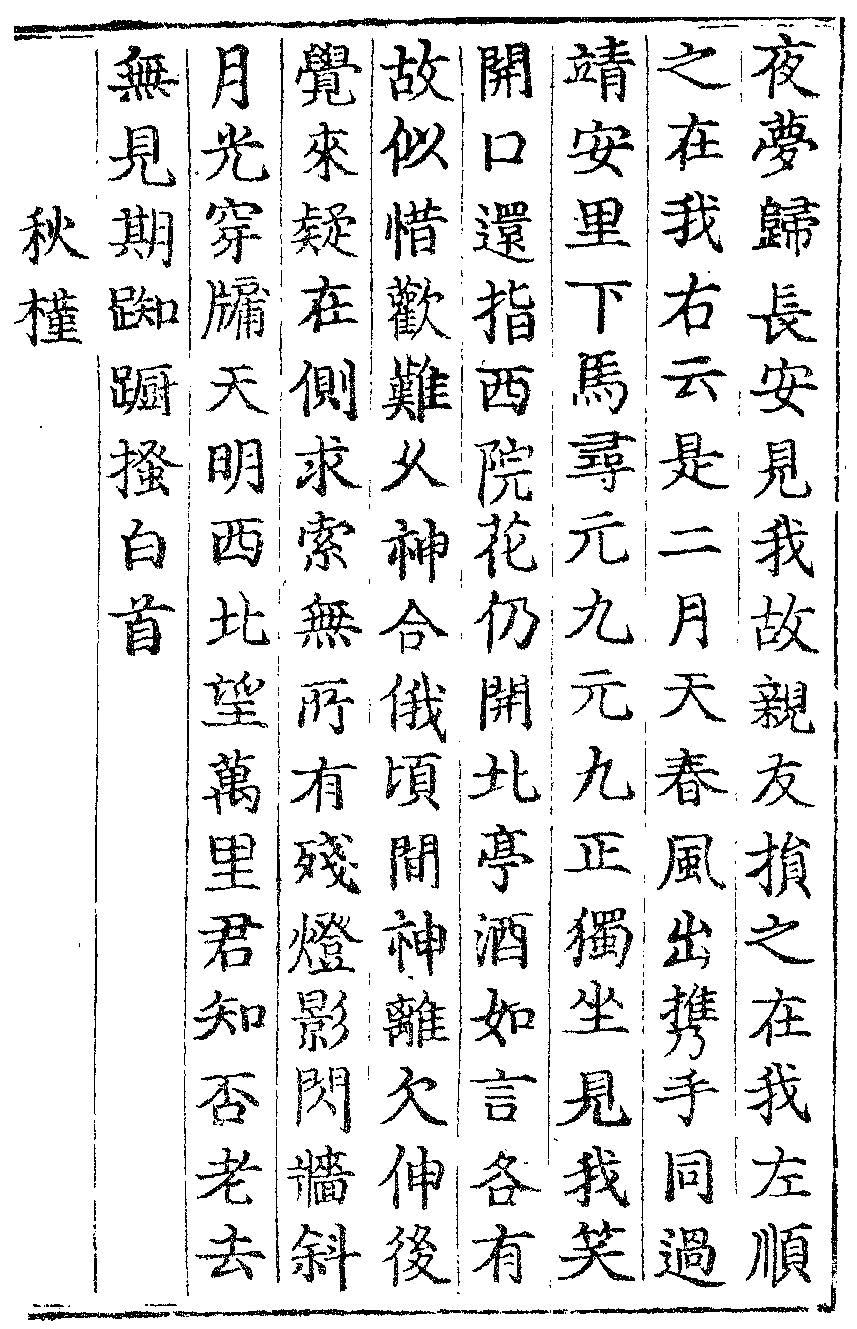 夜夢歸長安見我故親友損之在我左順
之在我右云是二月天春風出攜手同過
靖安里下馬尋元九元九正獨坐見我笑
開口還指西院花仍開北亭酒如言各有
故似惜歡難久神合俄頃間神離欠伸後
覺來疑在側求索無所有殘燈影閃牆斜
月光穿牖天明西北望萬里君知否老去
無見期踟蹰搔白首
秋槿